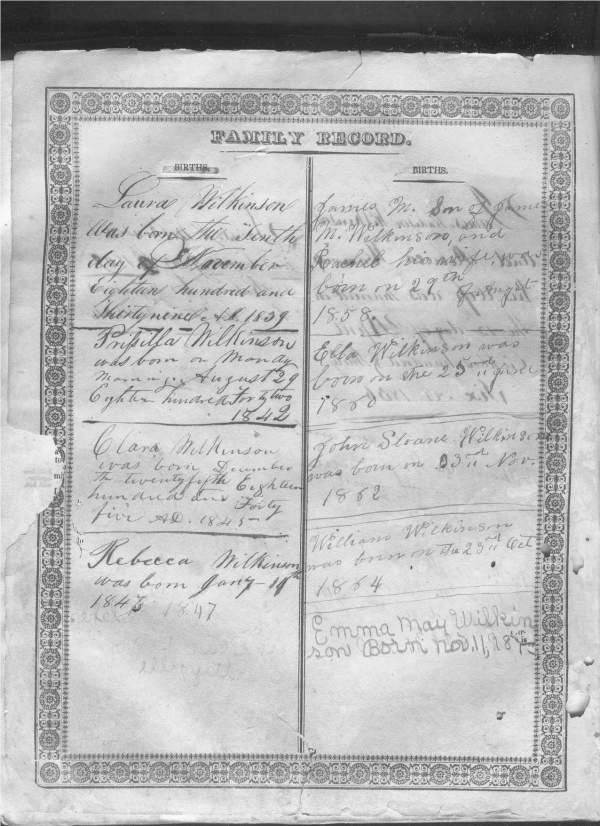 FAMILY RECORD.
BIRTHS.
Laura Wilkinson
Was born the Tenth
day of November
Eighteen hundred and
Thirtynine A.D. 1839
Prisilla Wilkinson
was born on Monday
Morning August 29
Eighteen hundred Forty two
1842
Clara Wilkinson
was born December
th twentyfifth Eighteen
hundred and Forty
five A.D. 1845
Rebecca Wilkinson
was born Jany 19th
1847
BIRTHS.
James M. Son of James
M. Wilkinson, and
Rachel his wife was
born on 29th August
1858.
Ella Wilkinson was
born on the 25
1860
John Sloane Wilkinson
was born on 03rd Nov.
1862
William Wilkinson
was born on the 23rd Oct
1864
Emma May Wilkin
son Born Nov. 11, 18